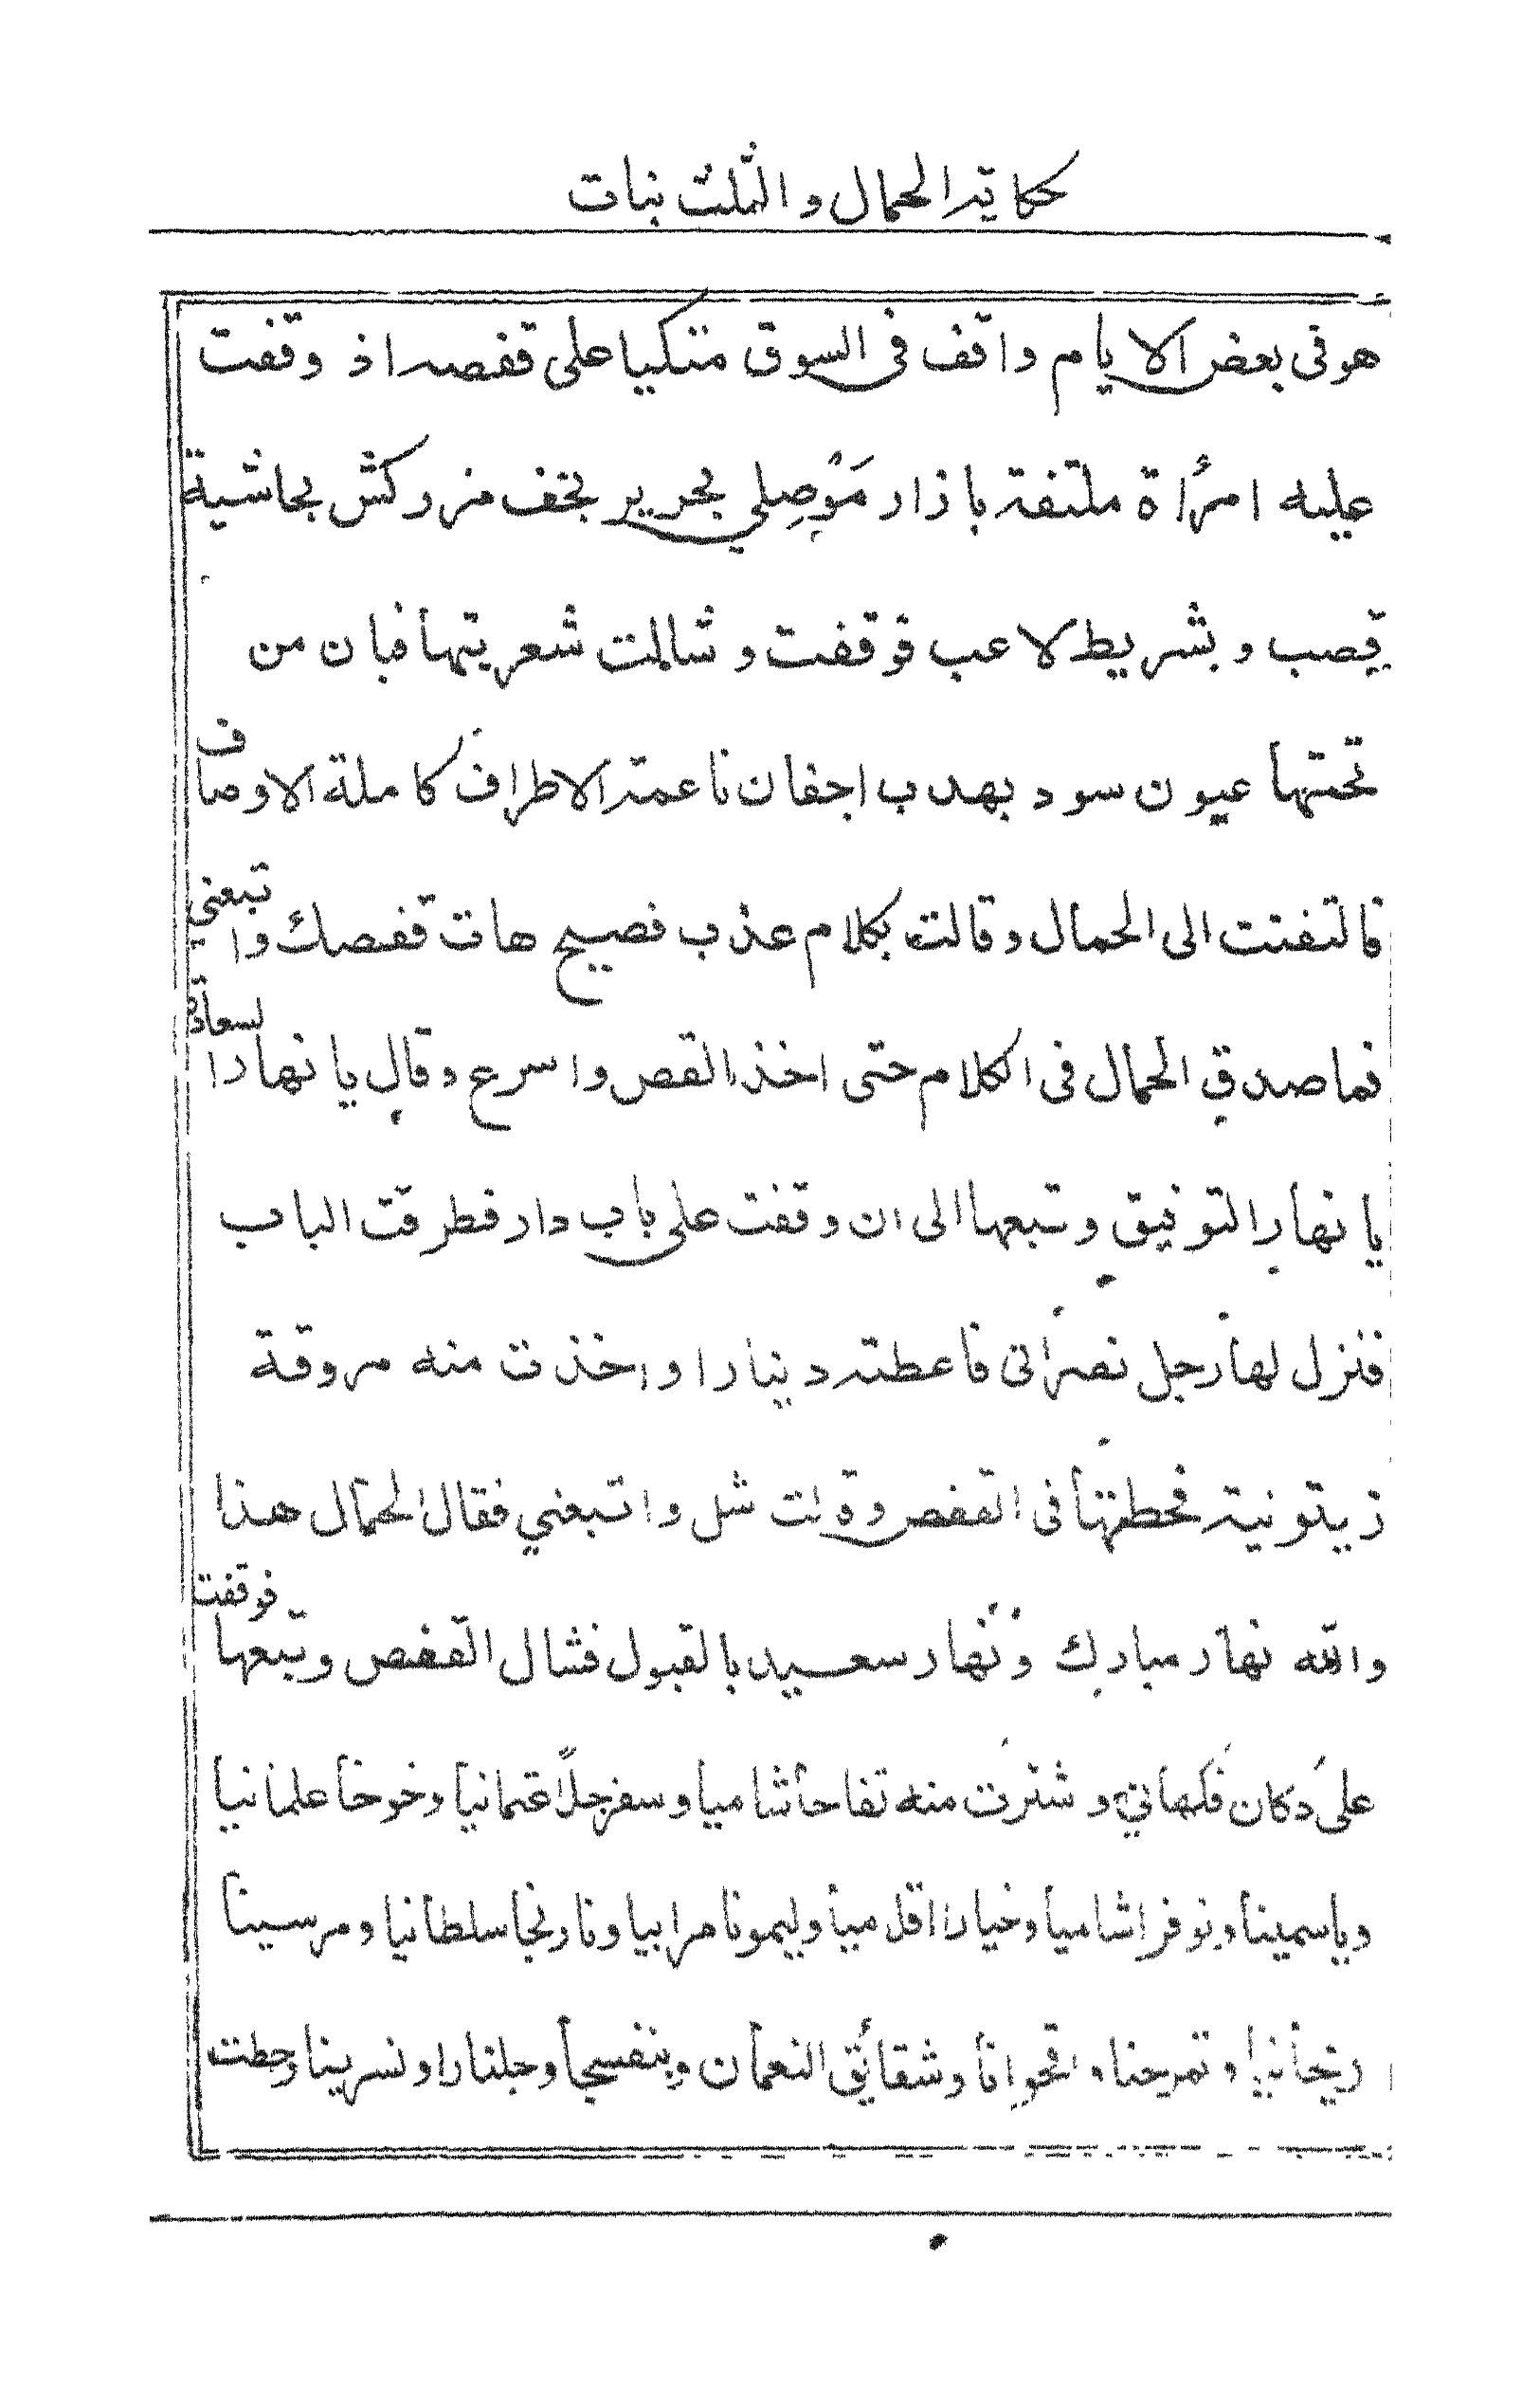 حكاية الحمال والثلث بنات
هو في بعض الايام واقف في السوق متكيا على قفصه اذ وقفت
عليه امرأة ملتفة بازار مَوْصِلي بحرير بخف مزركش بحاشية
قصب وبشريط لاعب فوقفت وشالت شعريتها فبان من
تحتها عيون سود بهدب اجفان ناعمة الاطراف كاملة الاوصاف
فالتفتت الى الحمال وقالت بكلام عذب فصيح هات قفصك واتبعني
فما صدق الحمال في الكلام حتى اخذ القص واسرع وقال يا نهار السعادة
يا نهار التوفيق وتبعها الى ان وقفت على باب دار فطرقت الباب
فنزل لها رجل نصراني فاعطته دينارا واخذت منه مروقة
زيتونية فحطتها في القفص وقالت شل واتبعني فقال الحمال هذا
والله نهار مبارك ونهار سعيد بالقبول فشال القفص وتبعها فوقفت
على دكان فكهاني وشترت منه تفاحا شاميا وسفرجلاً عثمانيا وخوخا علمانيا
وياسمينا ونوفرا شاميا وخيارا اقلاميا وليمونا مرابيا ونارنجا سلطانيا ومرسينا
ريحانيا وتمرحنا واقحوانا وشقائق النعمان وبنفسجا وجلنارا ونسرينا وحطت